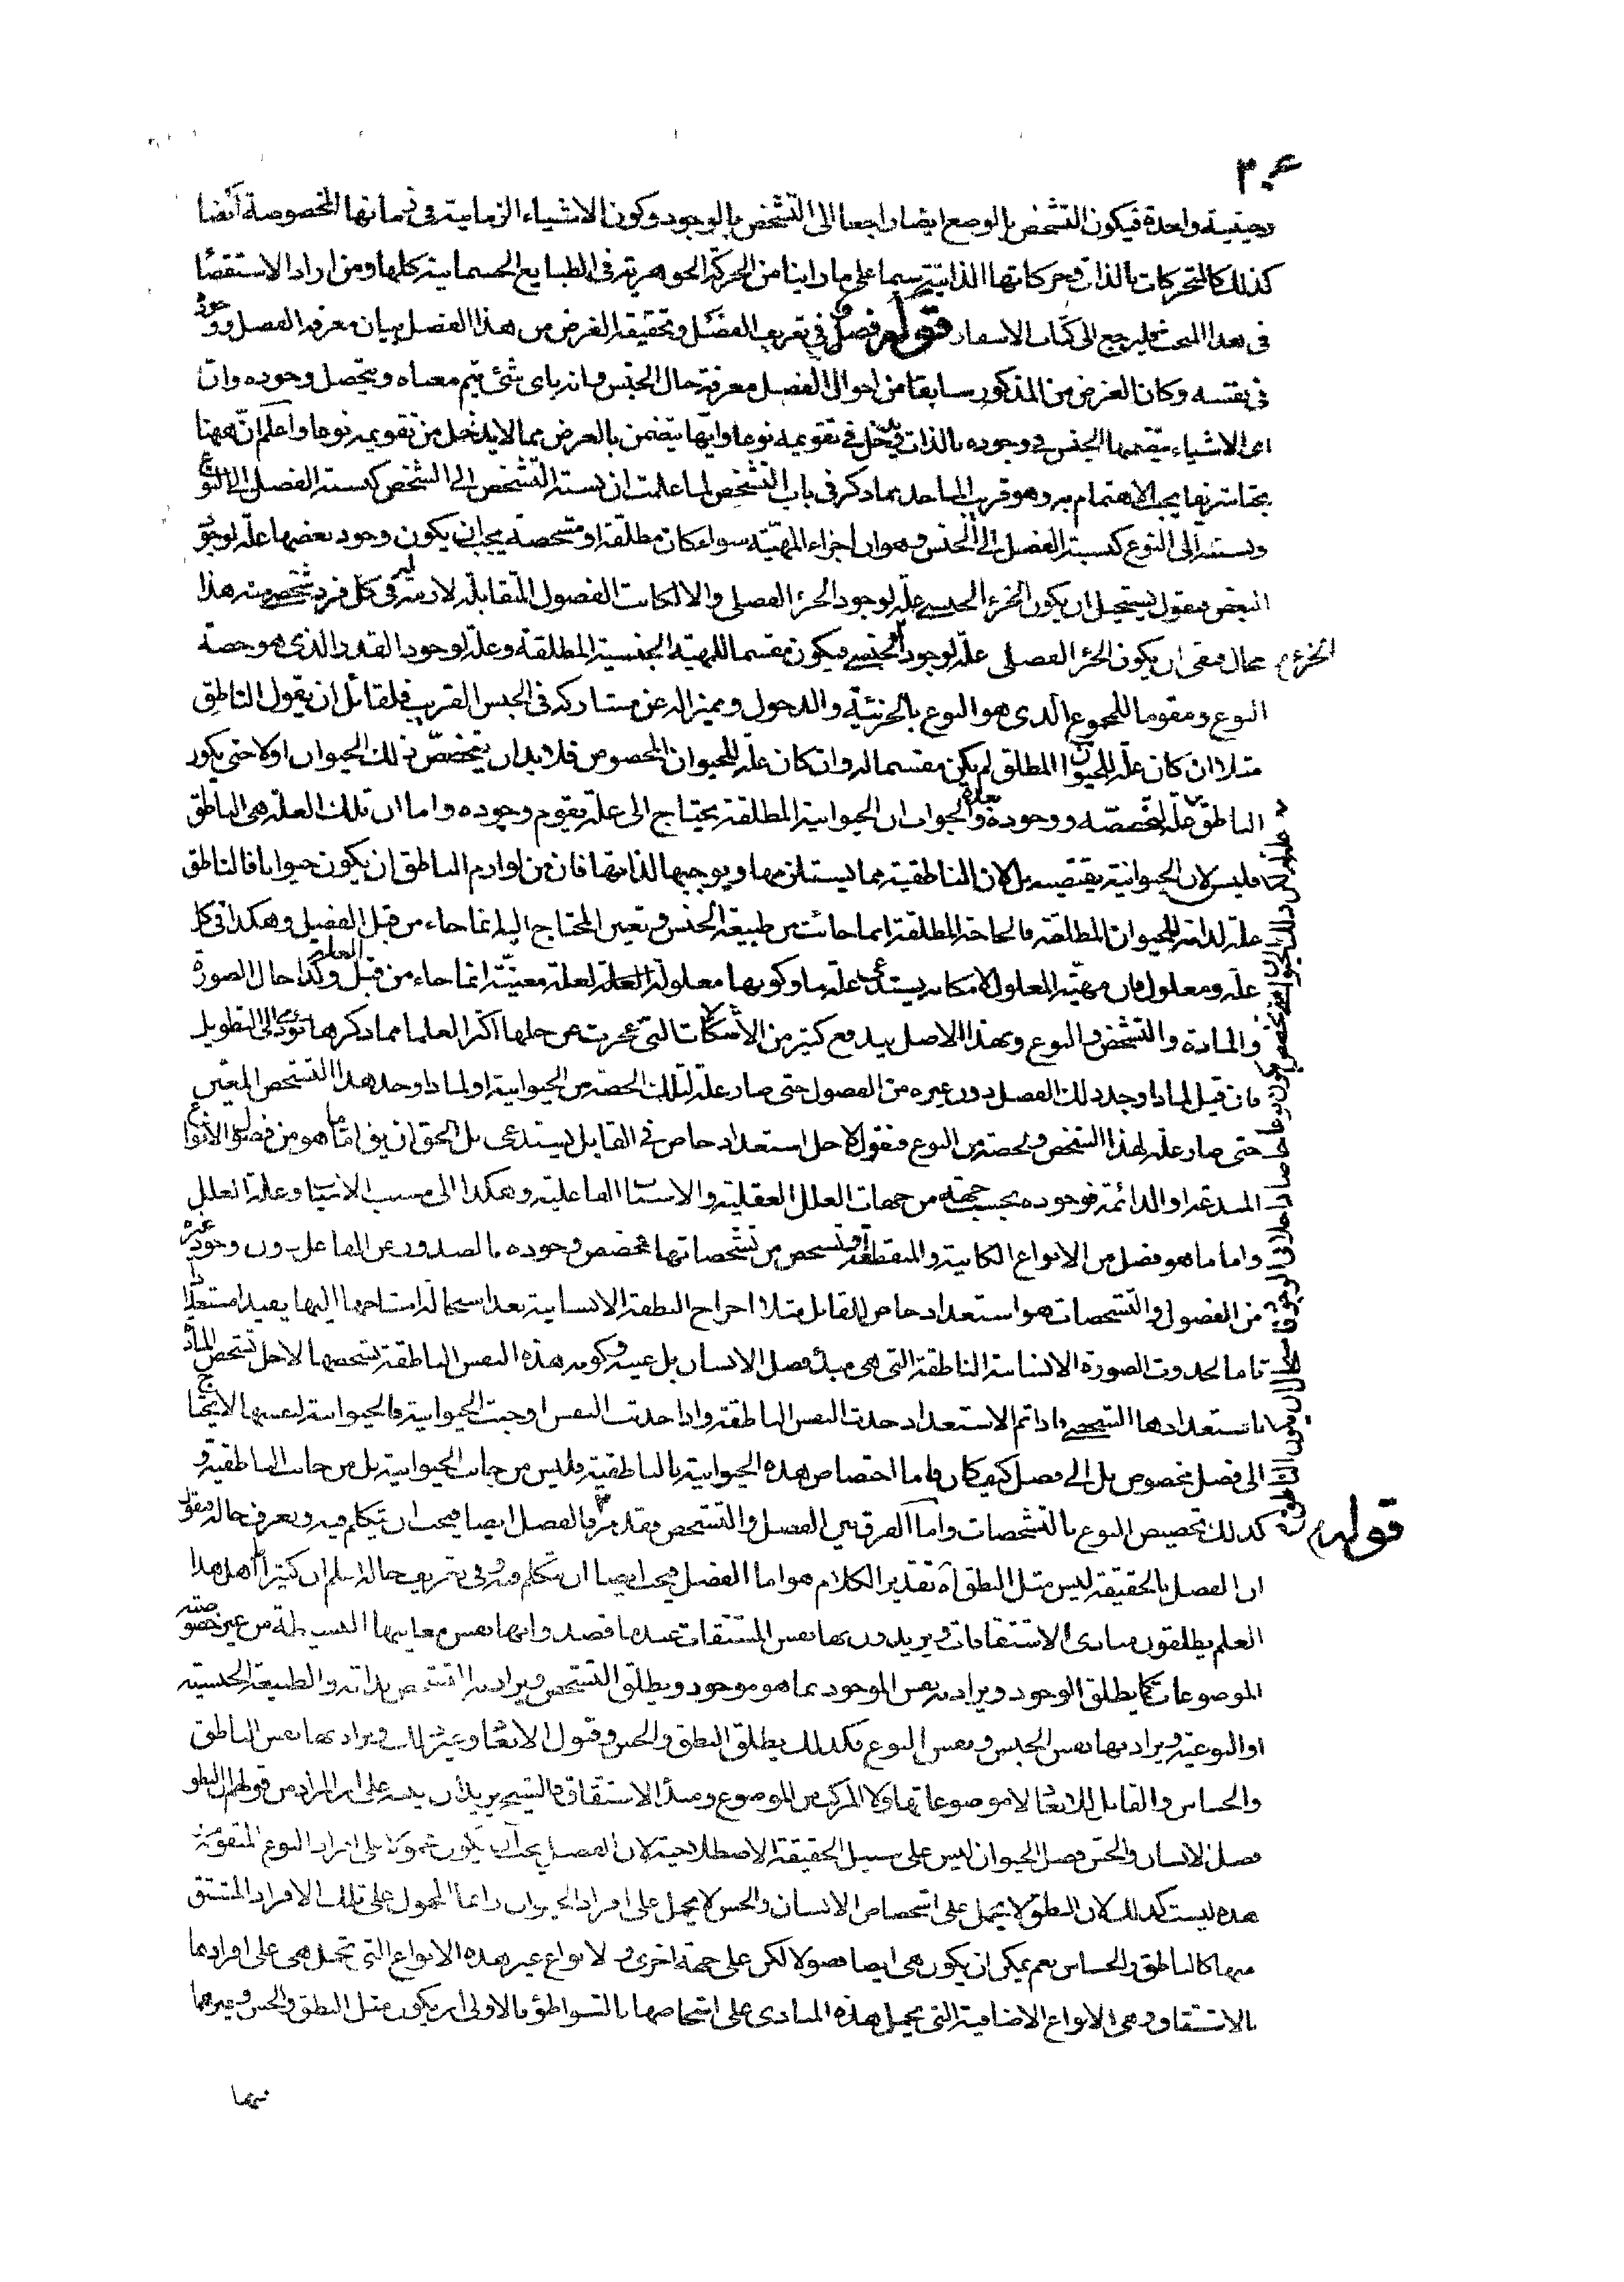 وحيثية واحدة فيكون التشخص بالوضع ايضا راجعا الى التشخص بالوجود وكون الاشياء الزمانية في زمانها المخصوصة ايضا
كذلك كالمتحركات بالذات وحركاتها الذاتية سيما على ما راينا من الحركة الجوهرية في الطبايع الجسمانية كلها ومن اراد الاستقصا
في هذا المبحث فليرجع الى كتاب الاسفار قوله فصل في تعريف الفصل وتحقيقه الغرض من هذا الفصل بيان معرفة الفصل ووجوده
في نفسه وكان الغرض من المذكور سابقا من احوال الفصل معرفة حال الجنس وانه باى شئ يتم معناه ويتحصل وجوده وان
اى الاشياء يتضمنها الجنس في وجوده بالذات يدخل في تقويمه نوعا وايها يتضمن بالعرض مما لا يدخل من تقويمه نوعا واعلم ان ههنا
بحثا شريفا يجب الاهتمام به وهو قريب الماخذ بما ذكر في باب التشخص لما علمت ان نسبة التشخص الى الشخص كنسبة الفصل الى النوع
ونسبته الى النوع كنسبة الفصل الى الجنس وهو ان اجزاء المهية سواء كان مطلقة او متشخصة يجب ان يكون وجود بعضها علة لوجود
البعض فنقول يستحيل ان يكون الجزء الجنسي علة لوجود الجزء الفصلى والا لكانت الفصول المتقابلة لازمة في كل فرد شخص منه هذا
محال فبقى ان يكون الجزء الفصلى علة لوجود الجزء الجنسي فيكون مقسما للمهية الجنسية المطلقة وعلة لوجود القدر الذى هو حصة
النوع ومقوما للمجموع الذى هو النوع بالجزئية والدخول ومميزا له عن مشاركه في الجنس القريب فلقائل ان يقول الناطق
مثلا ان كان علة للحيوان المطلق لم يكن مقسما له وان كان علة للحيوان المخصوص فلا بد ان يتخصص ذلك الحيوان اولا حتى يكون
الناطق علة لتخصصه ووجوده والجواب ان الحيوانية المطلقة يحتاج الى علة يقوم وجوده واما ان تلك العلة هى الناطق
فليس لان الحيوانية يقتضيه بل لان الناطقية مما يستلزمها ويوجبها لذاتها فان من لوازم الناطق ان يكون حيوانا فالناطق
علة لذاته للحيوان المطلقة فالحاجة المطلقة انما جائت من طبيعة الجنس وتعين المحتاج اليه انما جاء من قبل الفصل وهكذا في كل
علة ومعلول فان مهية المعلول لامكانه يستدعى علة ما وكونها معلولة لعلة معينة انما جاء من قبل العلة وكذا حال الصورة
والمادة والتشخص والنوع وبهذا الاصل يندفع كثير من الاشكالات التى عجزت عن حلها اكثر العلماء مما ذكرها تؤدى الى التطويل
فان قيل لماذا وجد ذلك الفصل دون غيره من الفصول حتى صار علة لتلك الحصة من الحيوانية او لماذا وجد هذا التشخص المعين
حتى صار علة لهذا الشخص ولحصته من النوع فنقول لاجل استعداد خاص في القابل يستدعى بل الحق ان يق اما ما هو من فصول الانواع
المبدعة او الدائمة فوجوده بحسب جهة من جهات العلل العقلية والاسباب الفاعلية وهكذا الى مسبب الاسباب وعلة العلل
واما ما هو فصل من الانواع الكاينة والمنقطعة او تشخص من تشخصاتها فمخصص وجوده بالصدور عن الفاعل دون وجود غيره
من الفصول والتشخصات هو استعداد خاص للقابل مثلا امزاج النطفة الانسانية بعد استحالة امشاجها اليها يفيد استعدادا
تاما لحدوث الصورة الانسانية الناطقة التى هى مبدء فصل الانسان بل عينه وكونه هذه النفس الناطقة بتشخصها لاجل تشخص المادة
باستعدادها الشخصي فاذا تم الاستعداد حدث النفس الناطقة واذا حدثت النفس اوجبت الحيوانية فالحيوانية لنفسها لا يحتاج
الى فصل مخصوص بل الى فصل كيف كان واما اختصاص هذه الحيوانية بالناطقية فليس من جانب الحيوانية بل من جانب الناطقية و
كذلك تخصيص النوع بالتشخصات واما الفرق بين الفصل والتشخص فقد مر قوله فالفصل ايضا يجب ان يتكلم فيه ويعرف حاله فنقول
ان الفصل بالحقيقة ليس مثل النطق آه تقدير الكلام هو اما الفصل فيجب ايضا ان يتكلم فيه وفى تعريف حاله اعلم ان كثيرا من اهل هذا
العلم يطلقون مبادى الاشتقاقات ويريدون بها نفس المشتقات عند ما قصدوا بها نفس معانيها البسيطة من غير خصوصية
الموضوعات كما يطلق الوجود ويراد به نفس الموجود بما هو موجود ويطلق التشخص ويراد به المتشخص بذاته والطبيعة الجنسية
او النوعية ويراد بها نفس الجنس ونفس النوع فكذلك يطلق النطق والحس وقبول الابعاد وغير ذلك ويراد بها نفس الناطق
والحساس والقابل للابعاد لا موضوعاتها ولا المركب من الموضوع ومبدأ الاشتقاق فالشيخ يريد ان ينبه على ان المراد من قولهم النطق
فصل الانسان والحس فصل الحيوان ليس على سبيل الحقيقة الاصطلاحية لان الفصل يجب ان يكون محمولا على افراد النوع المتقومة
هذه ليست كذلك لان النطق لا يحمل على اشخاص الانسان والحس لا يحمل على افراد الحيوان وانما المحمول على تلك الافراد المشتق
منها كالناطق والحساس نعم يمكن ان يكون هى ايضا فصولا لكن على جهة اخرى ولانواع غير هذه الانواع التى تحمل هى على افرادها
بالاشتقاق وهى الانواع الاضافية التى يحمل هذه المبادى على اشخاصها بالتواطؤ فالاولى ان يكون مثل النطق والحس وغيرهما
فيهما